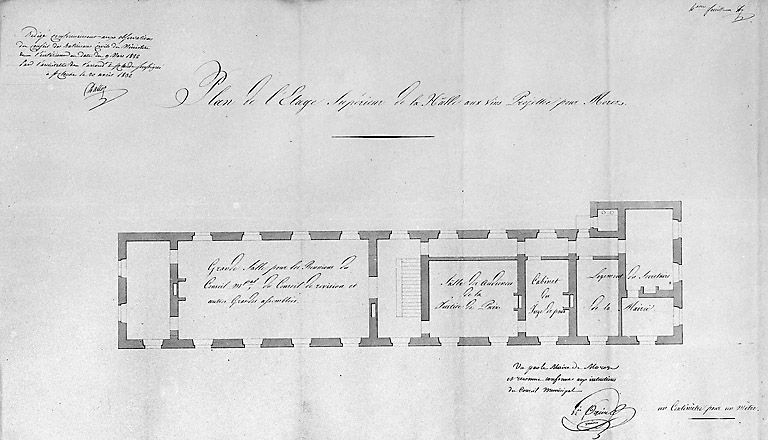 Rédigé conformement aux observations
du Conseil des Batimens Civils du Ministère
de l'Intérieur en date du 9 Mars 1832
par l'architecte de l'arrond.t de St Claude soussigné
à St Claude le 20 août 1832
Plan de l'Etage Supérieur de la Halle aux vins Projettée pour Morez.
Grande Salle pour les Réunions du
Conseil m.pal du Conseil de revision et
autres Grandes assemblées.
Salle de Audiences
de la
Justice de Paix
Cabinet
du
Juge de paix
Logement du Secretaire
de la Mairie
Vu par le Maire de Morez
et reconnu conforme aux intentions
du Conseil Municipal
un Centimètre pour un mètre.